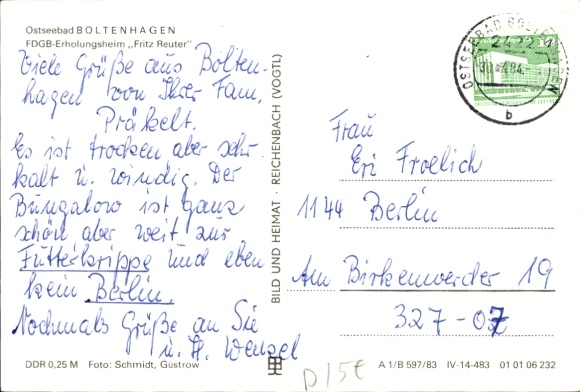 Ostseebad BOLTENHAGEN
FDGB-Erholungsheim „Fritz Reuter"
Viele Grüße aus Bolten-
hagen von Ihrer Fam.
Präkelt.
Es ist trocken aber sehr
kalt u. windig. Der
Bungalow ist ganz
schön aber weit zur
Futterkrippe und eben
kein Berlin.
Nochmals Grüße an Sie
u. H. Wenzel
DDR 0,25 M Foto: Schmidt, Güstrow
BILD UND HEIMAT · REICHENBACH (VOGTL)
OSTSEEBAD BOLTENHAGEN
2422
b
Frau
Eri Froelich
1144 Berlin
Am Birkenwerder 19
327-07
A 1/B 597/83 IV-14-483 01 01 06 232
D 15€